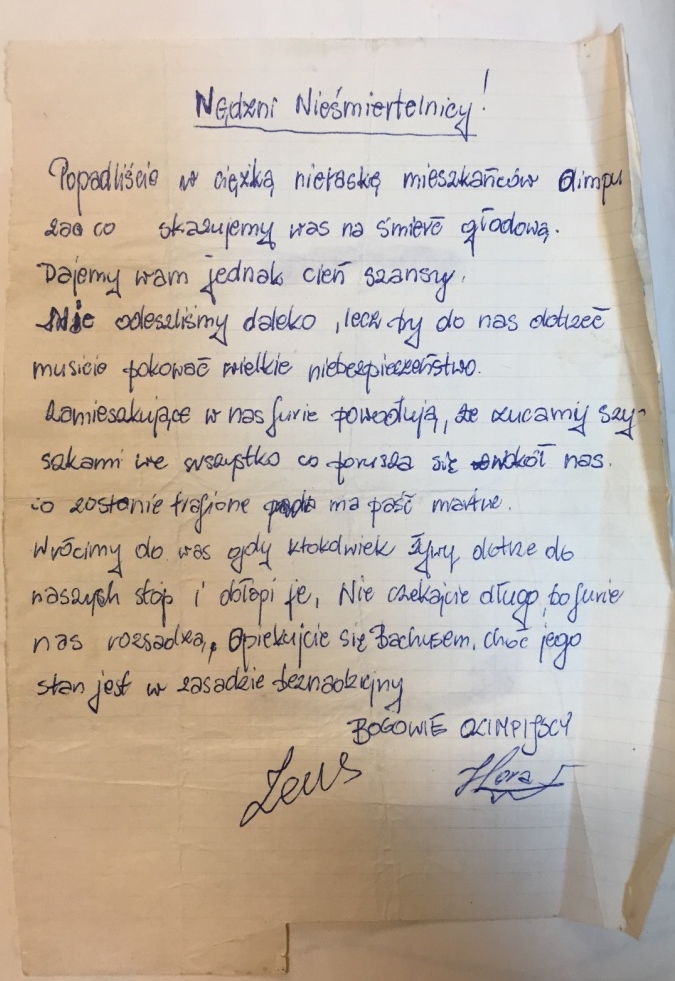 Nędzni Nieśmiertelnicy!
Popadliście w ciężką niełaskę mieszkańców Olimpu
za co skazujemy was na śmierć głodową.
Dajemy wam jednak cień szansy.
Nie odeszliśmy daleko, lecz by do nas dotrzeć
musicie pokować wielkie niebezpieczeństwo.
Zamieszkujące w nas furie powodują, że rzucamy szy-
szkami we wszystko co porusza się wokół nas.
co zostanie trafione ma paść martwe.
Wrócimy do was gdy ktokolwiek żywy dotrze do
naszych stóp i obłapi je, Nie czekajcie długo, bo furie
nas rozsadzą, Opiekujcie się Bachusem, choć jego
stan jest w zasadzie beznadziejny
BOGOWIE OLIMPIJSCY
Zeus Hera